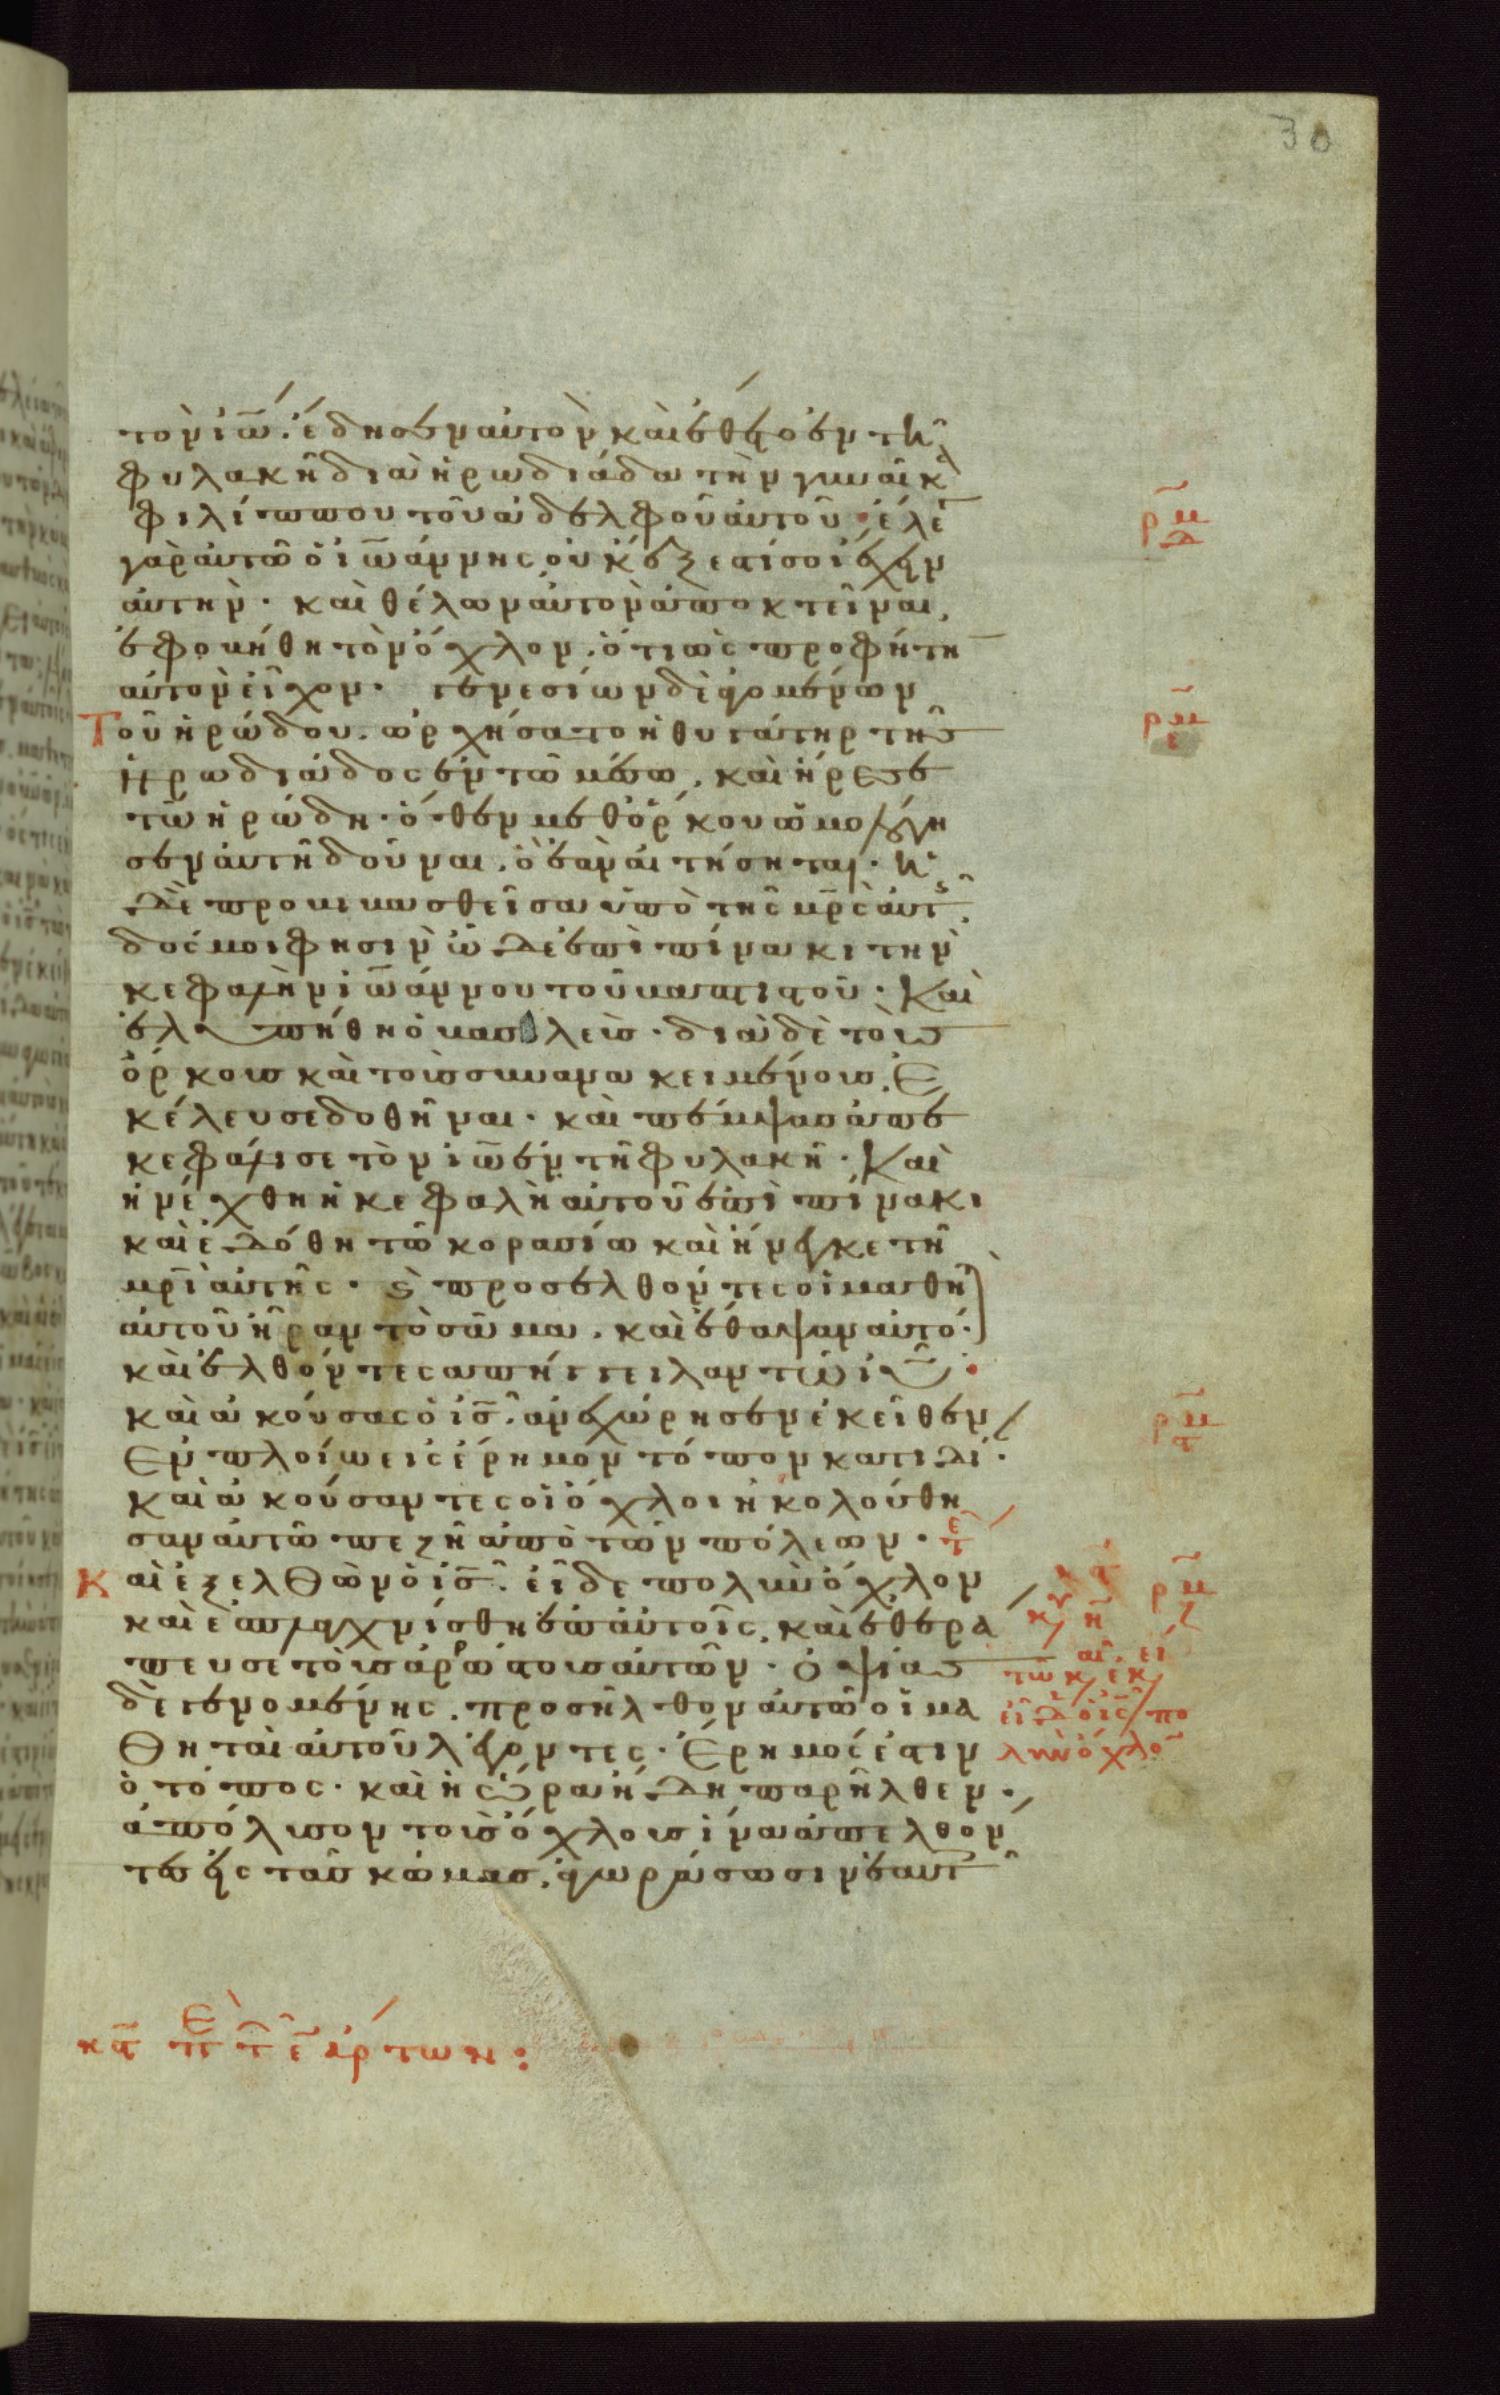 30
τὸν ἰω̅. ἔδησεν αὐτὸν καὶ ἔθετο ἐν τῆ
φυλακῆ διὰ ἡρωδιάδα τὴν γυναῖκα
φιλίππου τοῦ ἀδελφοῦ αὐτοῦ · ἔλε
γὰρ αὐτῶ ὁ ἰωάννης οὐκ ἔξεστί σοι ἔχειν
αὐτήν · καὶ θέλων αὐτὸν ἀποκτεῖναι,
ἐφοβήθη τὸν ὄχλον. ὅτι ὡς προφήτη
αὐτὸν εἶχον · γενεσίων δὲ ἀγομένων
Τοῦ ἡρώδου. ὠρχήσατο ἡ θυγάτηρ τῆς
ἡρωδιάδος ἐν τῶ μέσω. καὶ ἤρεσε
τῶ ἡρώδη · ὅθεν μεθ ὅρκου ὡμολόγη
σεν αὐτῆ δοῦναι. ὃ ἐὰν αἰτήσηται · ἡ
δὲ προβιβασθεῖσα ὑπὸ τῆς μρ̅ς αὐτ
δός μοι φησὶν ὧδε ἐπὶ πίνακι τὴν
κεφαλὴν ἰωάννου τοῦ βαπτιστοῦ · Καὶ
ἐλυπήθη ὁ βασιλεύς · διὰ δὲ τοὺς
ὅρκους καὶ τοὺς συνανακειμένους. Ε
κέλευσε δοθῆναι · καὶ πέμψας ἀπε
κεφάλισε τὸν ἰω̅ ἐν τῆ φυλακῆ · Καὶ
ἠνέχθη ἡ κεφαλὴ αὐτοῦ ἐπὶ πίνακι
καὶ ἐδόθη τῶ κορασίω καὶ ἤνεγκε τῆ
μρ̅ὶ αὐτῆς · ϛ προσελθόντες οἱ μαθη
αὐτοῦ ἦραν τὸ σῶμα. καὶ ἔθαψαν αὐτό ·
καὶ ἐλθόντες ἀπήγγειλαν τῶ ἰυ̅ ·
καὶ ἀκούσας ὁ ἰς̅. ἀνεχώρησεν ἐκεῖθεν
Ἐν πλοίω εἰς ἔρημον τόπον κατ ιδί ·
Καὶ ἀκούσαντες οἱ ὄχλοι ἠκολούθη
σαν αὐτῶ πεζῆ ἀπὸ τῶν πόλεων · τε
Καὶ ἐξελθὼν ὁ ἰς̅. εἶδε πολὺν ὄχλον
καὶ ἐσπλαγχνίσθη ἐπ αὐτοῖς. καὶ ἐθερά
πευσε τοὺς ἀρρώστους αὐτῶν · ὀψίας
δὲ γενομένης. προσῆλθον αὐτῶ οἱ μα
Θηταὶ αὐτοῦ λέγοντες · Ἔρημός ἐστιν
ὁ τόπος · καὶ ἡ ὥρα ἤδη παρῆλθεν ·
ἀπόλυσον τοὺς ὄχλους ἵνα ἀπελθόν
τες εἰς τὰς κώμας. ἀγοράσωσιν ἑαυτ
ρμ δ
ρμ ε
ρμ ϛ
ρμ ζ
κυ η
τῶ κ, εκ,
εἶδ ὁ ἰς̅ πο
λὺν ὄχλο
κα̅ πε τ ε̅ ἄρτων :